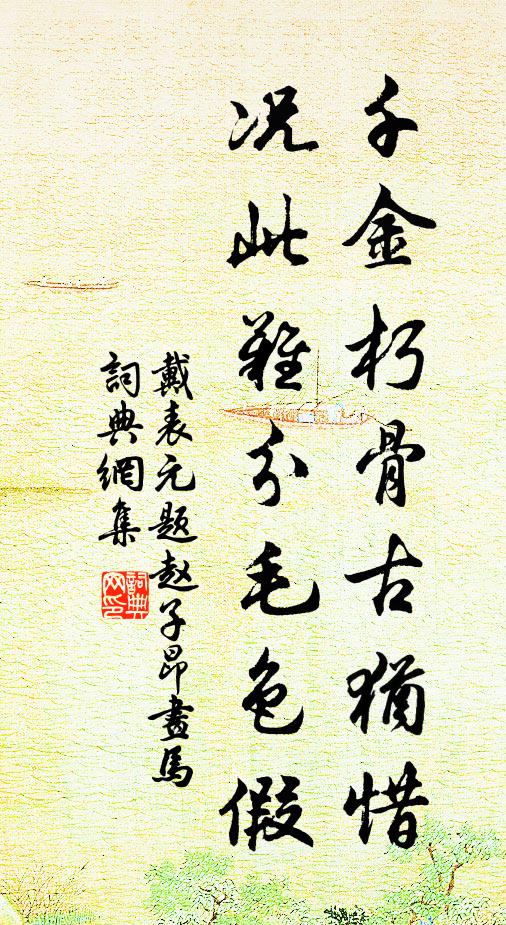 千金朽骨古犹惜
况此難分毛色假
戴表元题赵子昂畫馬
詞典網集
詞典网印